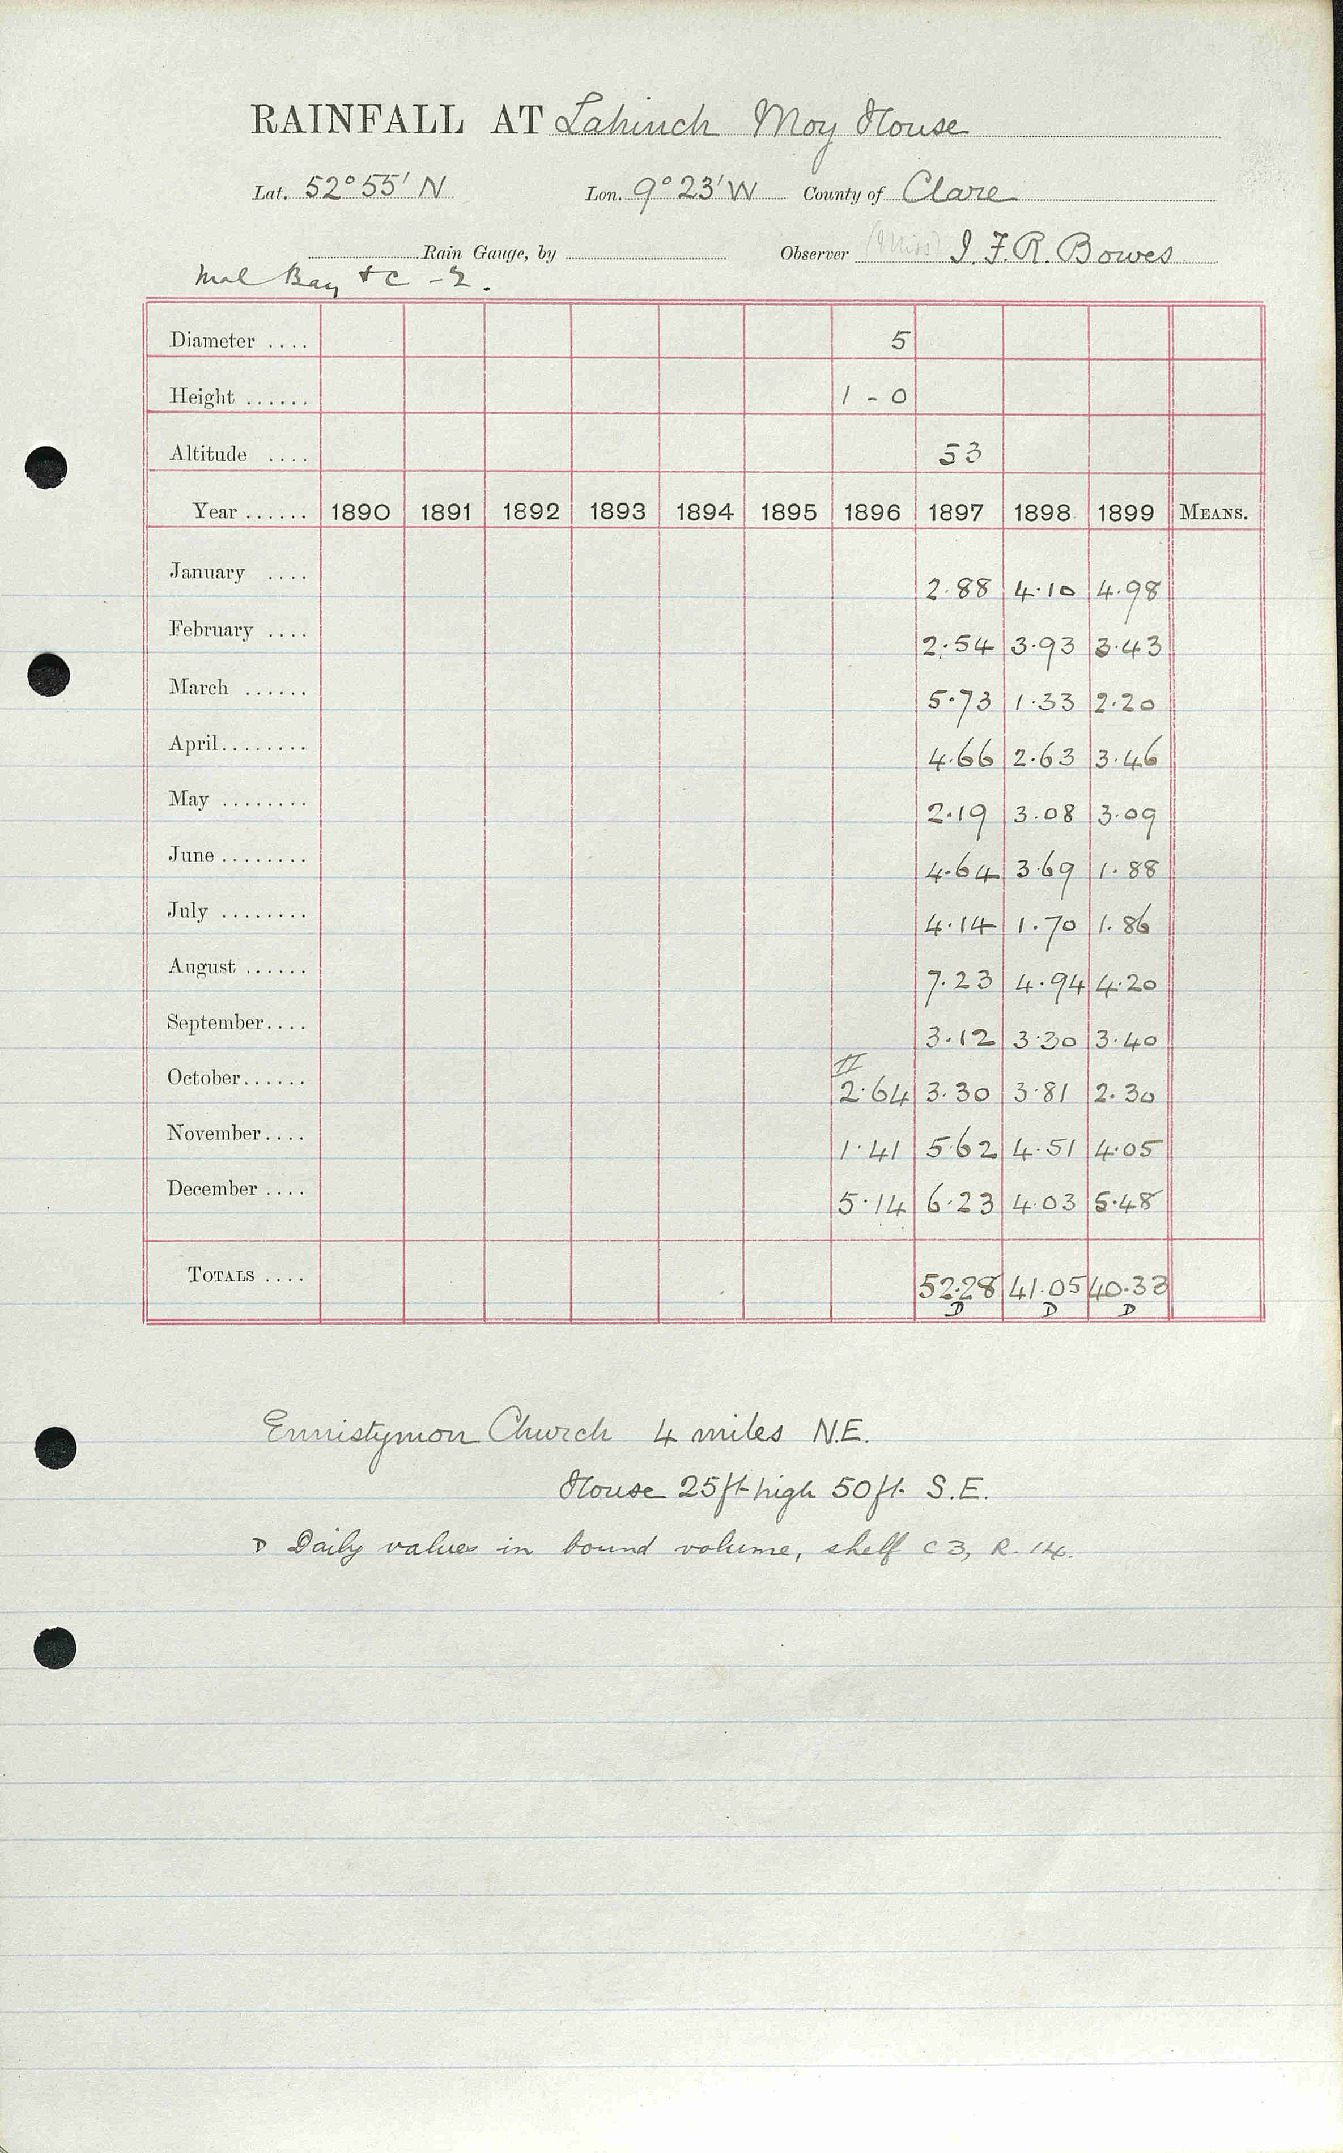 RAINFALL AT Lahinch Moy House
Lat. 52° 55' N Lon. 9° 23' W County of Clare
Rain Gauge, by Observer (Miss) I. F. R. Bowes
Mal Bay & C - 2.
Diameter .... 5
Height ...... 1 - 0
Altitude .... 53
Year ...... 1890 1891 1892 1893 1894 1895 1896 1897 1898 1899 MEANS.
January .... 2.88 4.10 4.98
February .... 2.54 3.93 3.43
March ...... 5.73 1.33 2.20
April ........ 4.66 2.63 3.46
May ........ 2.19 3.08 3.09
June ........ 4.64 3.69 1.88
July ........ 4.14 1.70 1.86
August ...... 7.23 4.94 4.20
September .... 3.12 3.30 3.40
II
October ...... 2.64 3.30 3.81 2.30
November .... 1.41 5.62 4.51 4.05
December .... 5.14 6.23 4.03 5.48
TOTALS .... 52.28 41.05 40.33
D D D
Ennistymon Church 4 miles N.E.
House 25ft high 50ft. S.E.
D Daily values in bound volume, shelf C 3, R. 14.